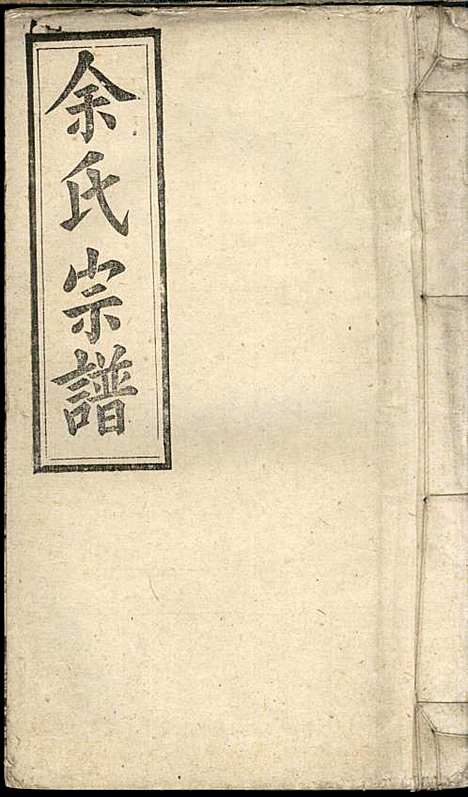 余氏宗譜